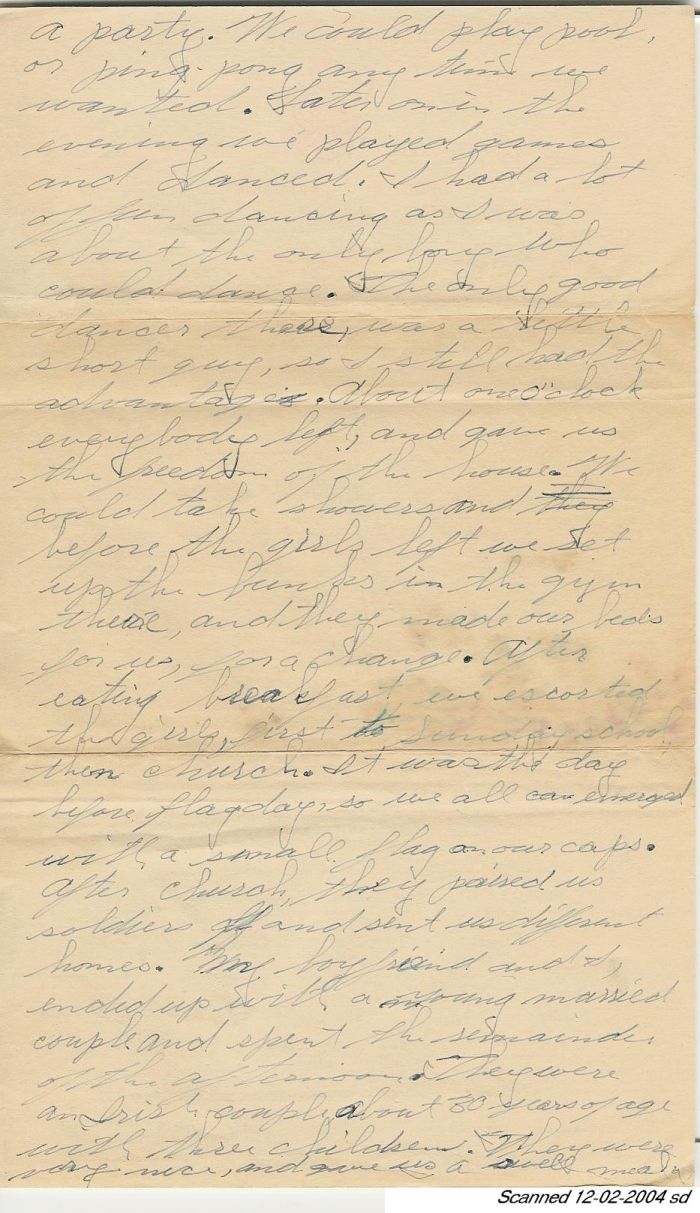 a party. We could play pool,
or ping-pong any time we
wanted. Later on in the
evening we played games
and danced. I had a lot
of fun dancing as I was
about the only boy who
could dance. The only good
dancer there, was a little
short guy, so I still had the
advantage. About one o'clock
everybody left, and gave us
the freedom of the house. We
could take showers and they
before the girls left we set
up the bunks in the gym
there, and they made our beds
for us, for a change. After
eating breakfast, we escorted
the girls, first to Sunday school
then church. It was the day
before flagday, so we all emerged
with a small flag on our caps.
After church, they paired us
soldiers off and sent us different
homes. My boyfriend and I,
ended up with a young married
couple and spent the remainder
of the afternoon. They were
an Irish couple about 30 years of age
with three children. They were
very nice, and gave us a swell meal
Scanned 12-02-2004 sd